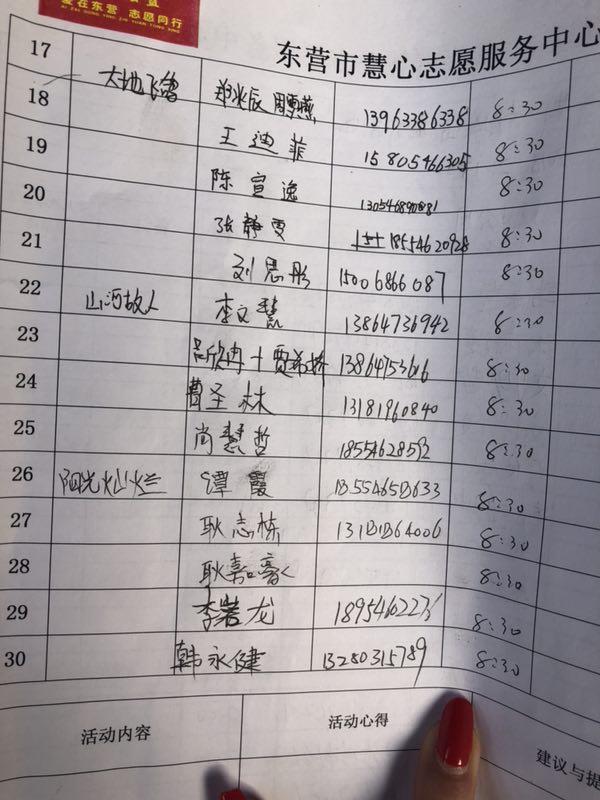 爱在东营 志愿同行
AI ZAI DONG YING ZHI YUAN TONG XING
东营市慧心志愿服务中心
17
大地飞鸽
18 13963386338 8:30
19 王迪菲 15805466305 8:30
20 陈宣逸 13054689081 8:30
21 张静雯 18554620928 8:30
刘思彤 15006866087 8:30
22 山河故人 李文慧 13864736942 8:30
23 13864753616 8:30
24 曹圣林 13181960840 8:30
25 尚慧哲 8:30
26 阳光灿烂 谭霞 8:30
27 耿志栋 8:30
28 耿嘉 8:30
29 李岩龙 8:30
30 韩永健 13280315789 8:30
活动内容
活动心得
建议与提